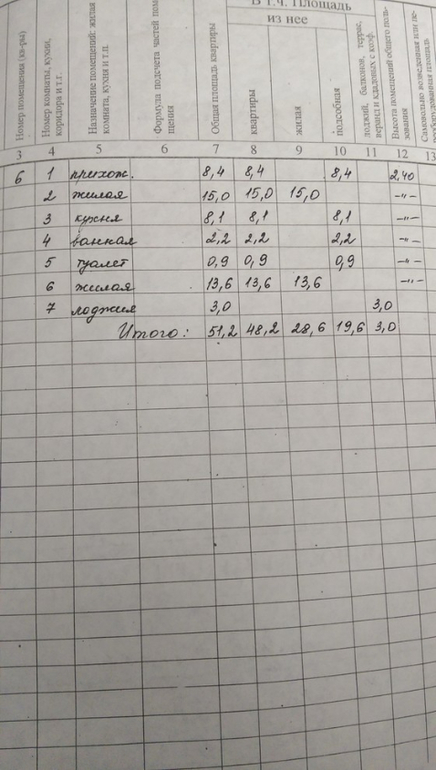 В т.ч. Площадь
из нее
Номер помещения (кв-ры)
Номер комнаты, кухни, коридора и т.г.
Назначение помещений: жилая комната, кухня и т.п.
Формула подсчета частей поме щения
Общая площадь квартиры
квартиры
жилая
подсобная
лоджий, балконов, террас, веранд и кладовых с коэф.
Высота помещений общего поль- зования
Самовольно возведенная или пе-
площадь
3 4 5 6 7 8 9 10 11 12 13
6 1 прихож. 8,4 8,4 8,4 2,40
2 жилая 15,0 15,0 15,0 -"-
3 кухня 8,1 8,1 8,1 -"-
4 ванная 2,2 2,2 2,2 -"-
5 туалет 0,9 0,9 0,9 -"-
6 жилая 13,6 13,6 13,6 -"-
7 лоджия 3,0 3,0
Итого: 51,2 48,2 28,6 19,6 3,0